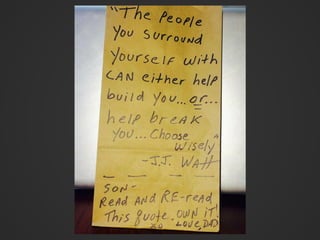 "The People
You Surround
Yourself with
CAN either help
build you...or...
help break
you...Choose
wisely"
-J.J. Watt
— — — —
SON-
Read AND RE-read
This quote. OWN IT.
XO LOVE, DAD